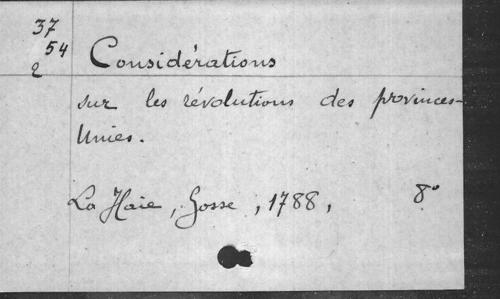 37
54
2
Considérations
sur les révolutions des provinces-
Unies.
La Haie, Gosse, 1788, 8°